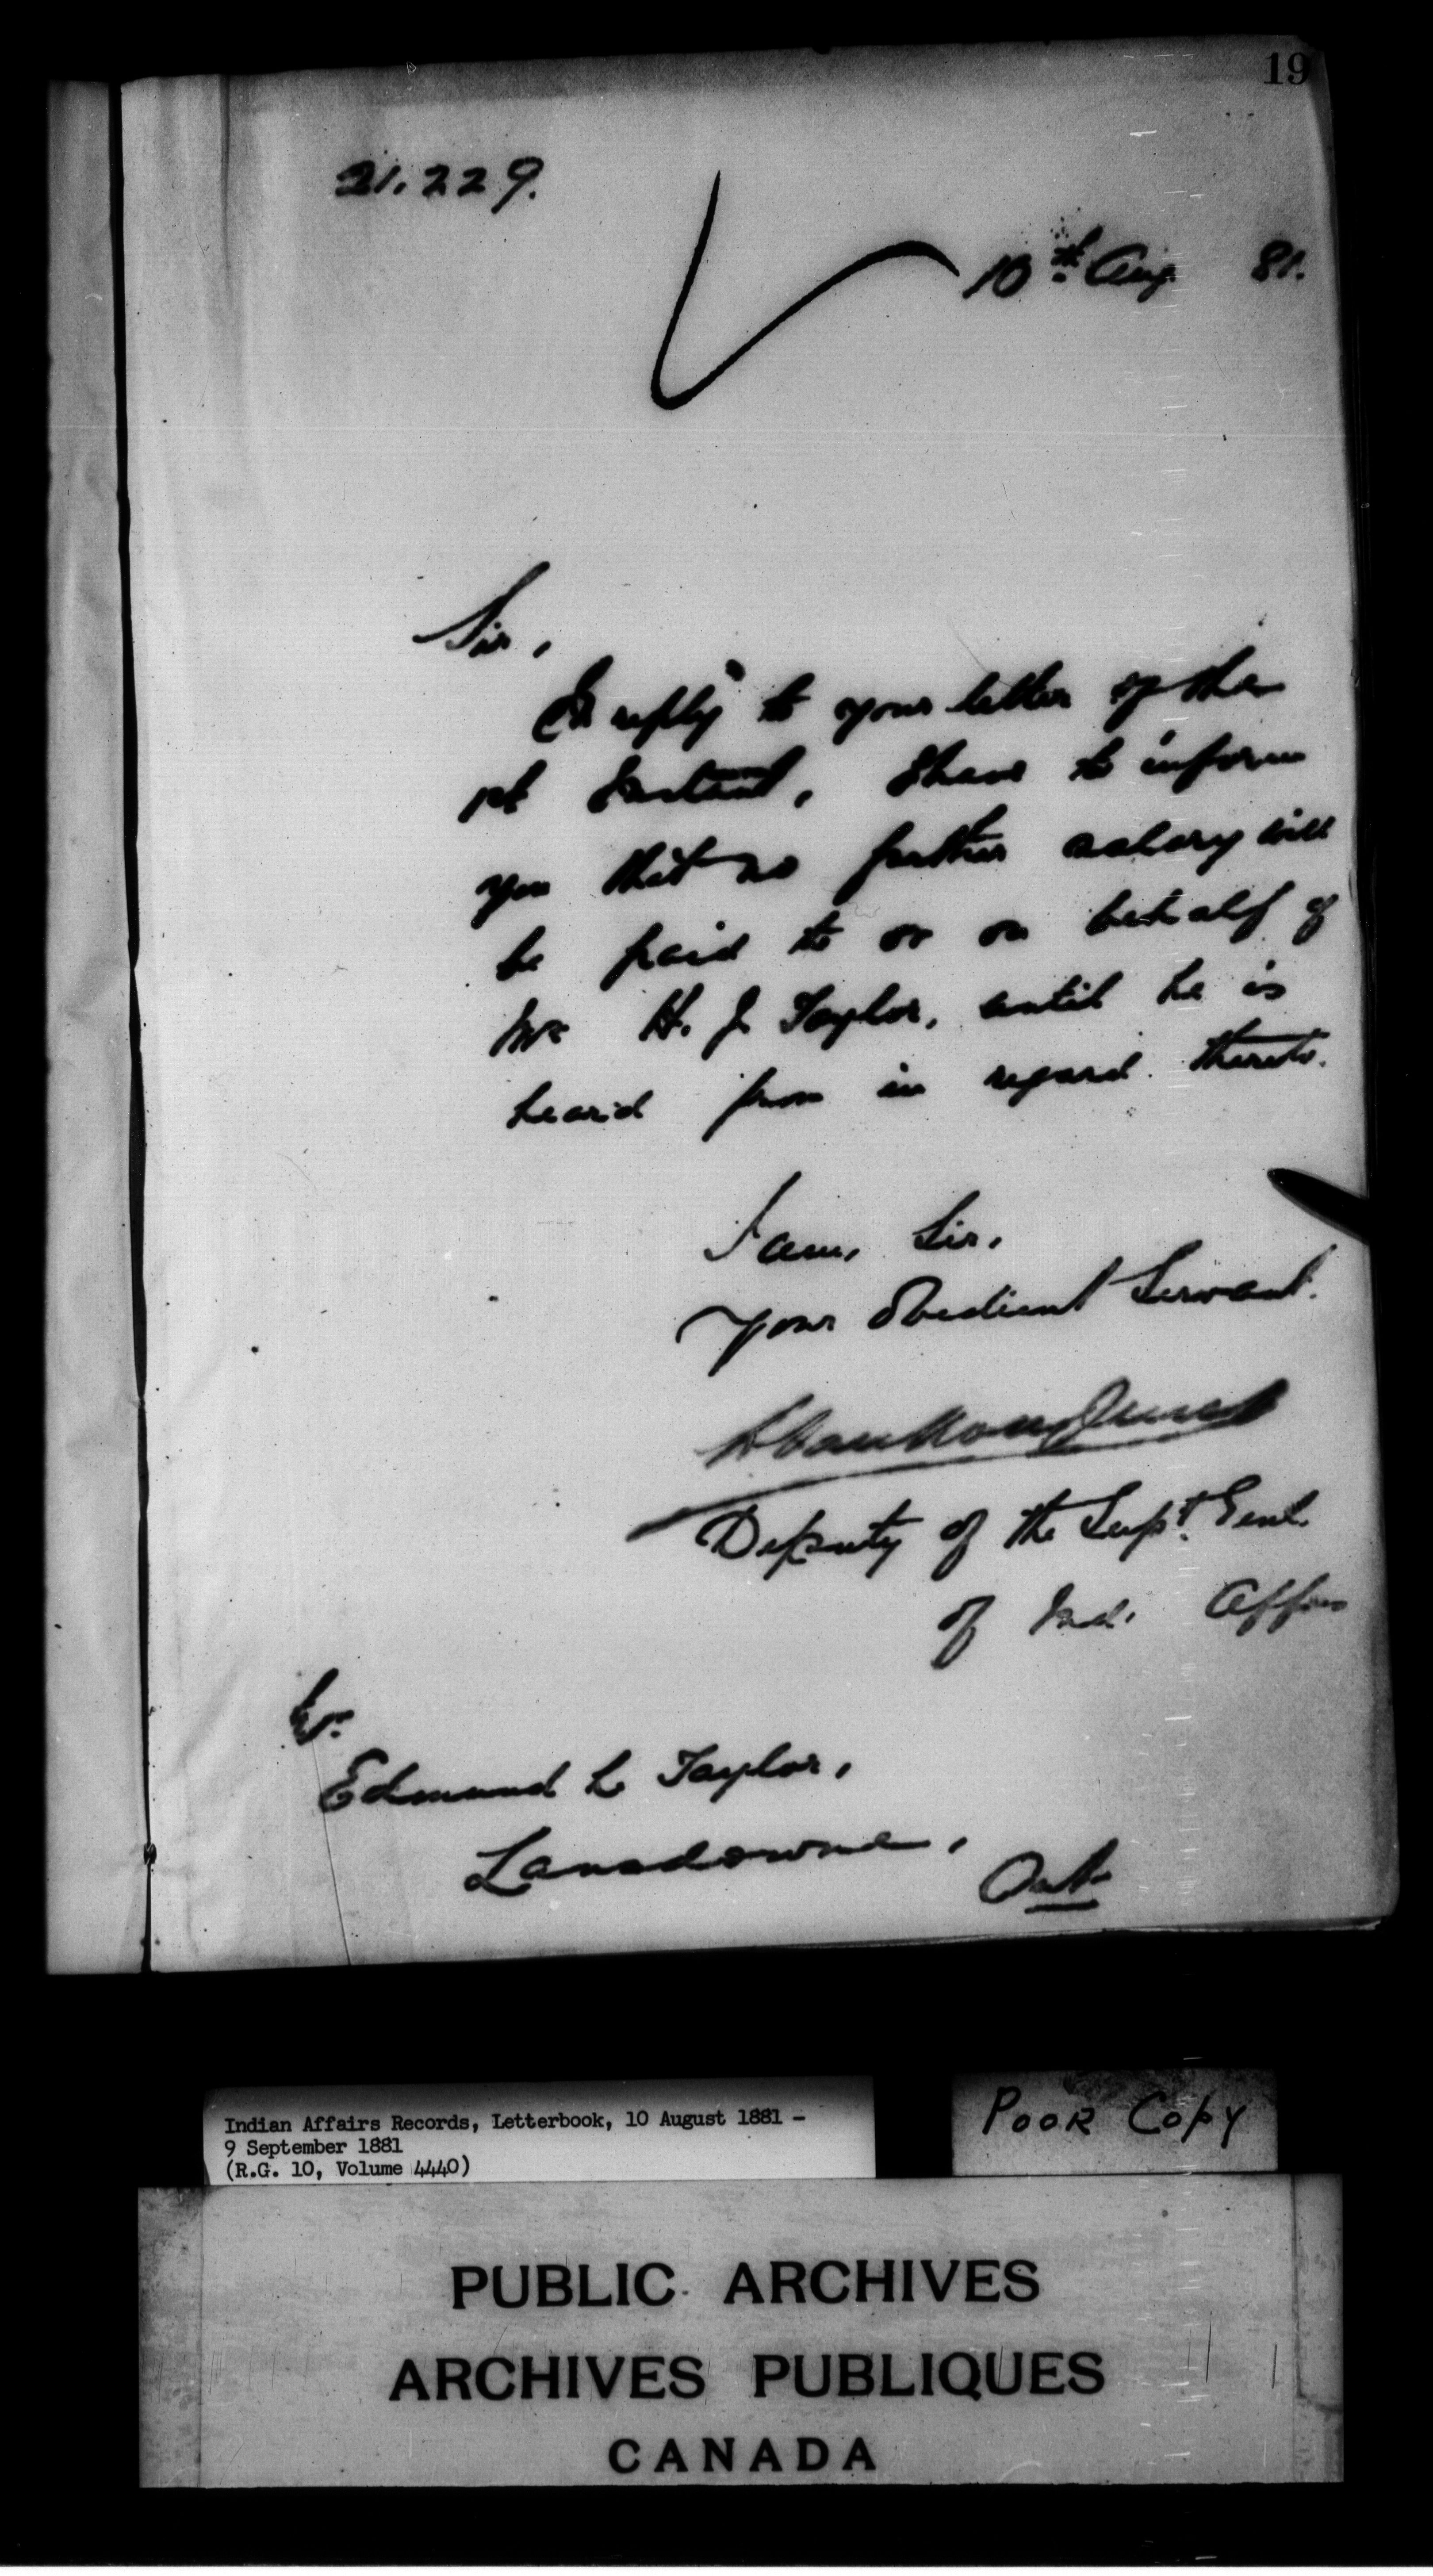 19
21.229.
10th Aug. 81.
Sir,
In reply to your letter of the
1st Instant, I have to inform
you that no further salary will
be paid to or on behalf of
Mr H. J. Taylor, until he is
heard from in regard thereto.
I am, Sir,
Your Obedient Servant.
Deputy of the Supt. Genl.
of Ind. Affairs
Edmund L Taylor,
Lansdowne,
Ont.
Indian Affairs Records, Letterbook, 10 August 1881 -
9 September 1881
(R.G. 10, Volume 4440)
POOR COPY
PUBLIC ARCHIVES
ARCHIVES PUBLIQUES
CANADA